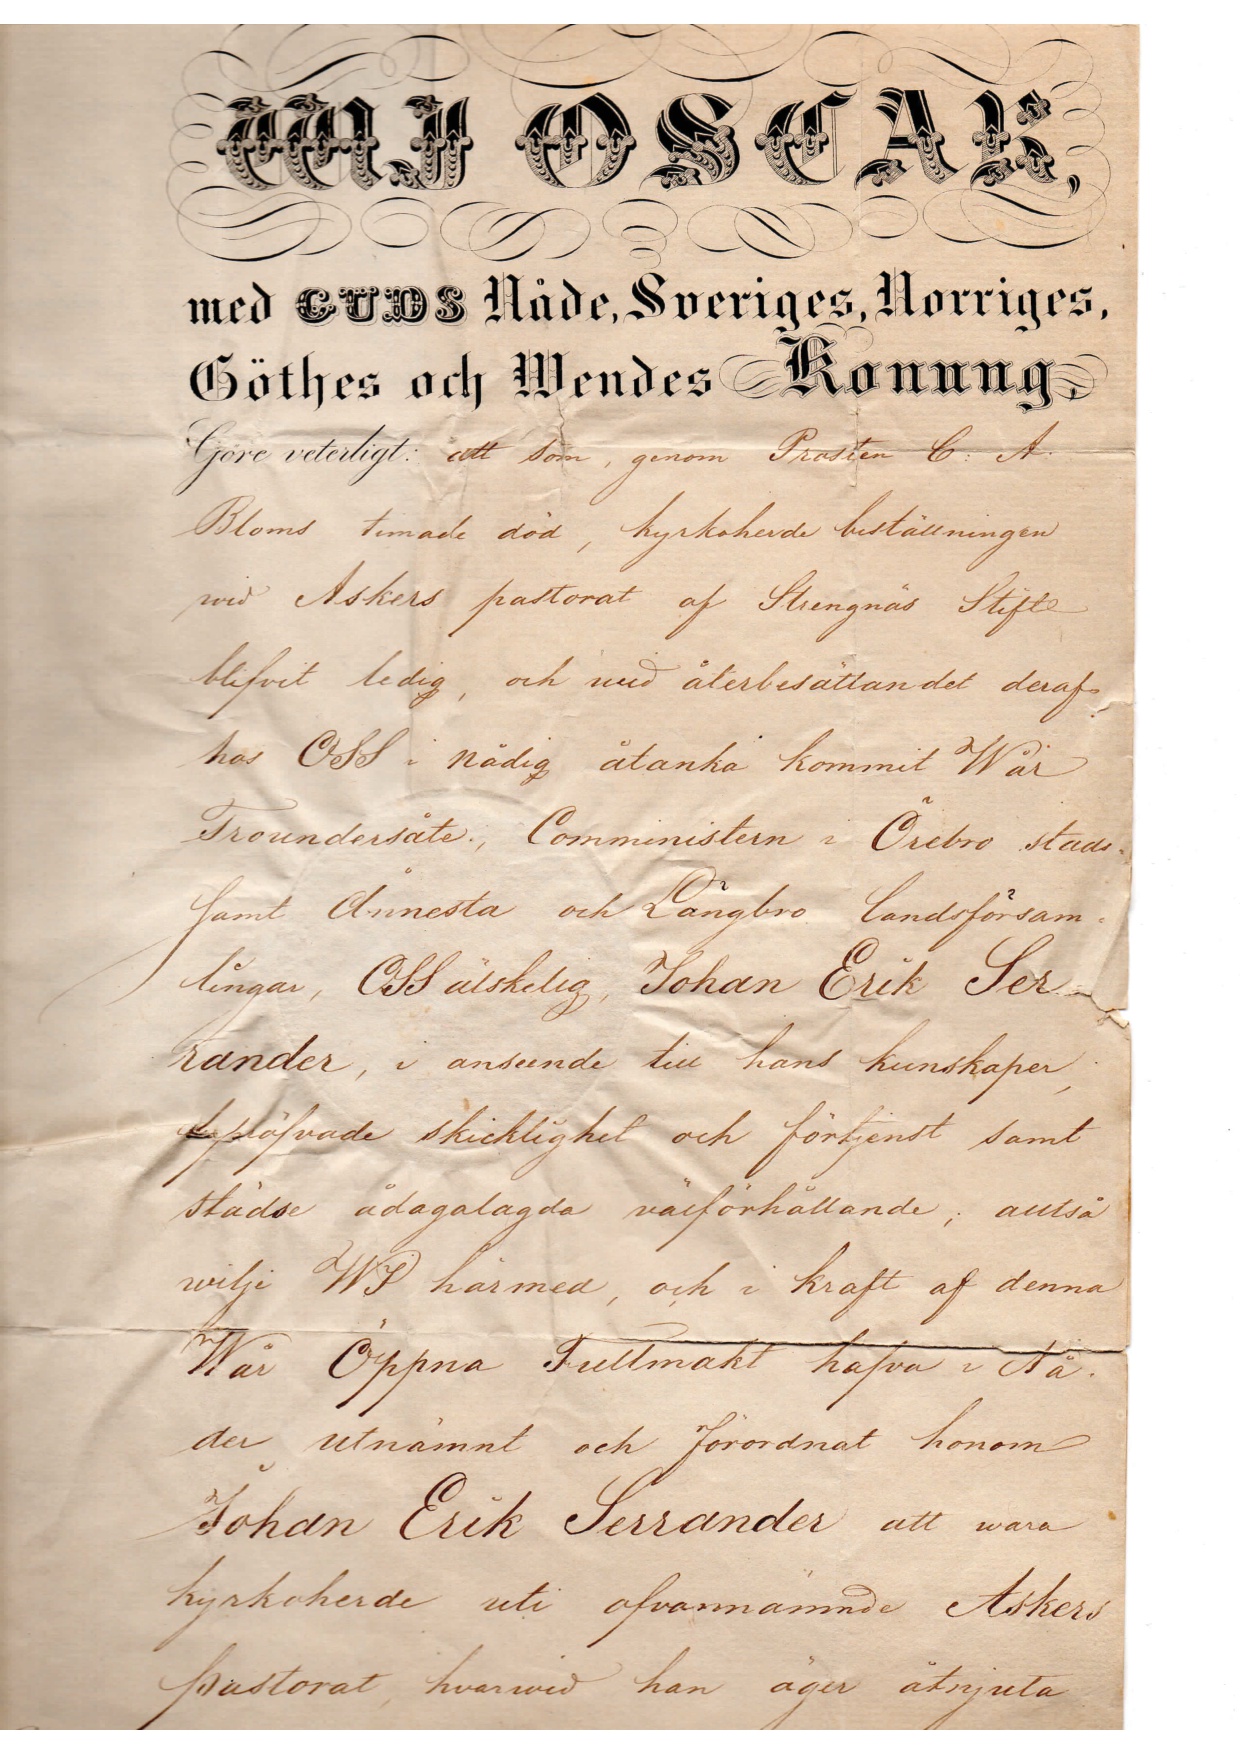 WJ OSCAR,
med GUDS Nåde, Sveriges, Norriges,
Göthes och Wendes Konung,
Göre veterligt: att som, genom Prosten C. A.
Bloms timade död, kyrkoherde beställningen
wid Askers pastorat af Strengnäs Stift
blifvit ledig, och wid återbesättandet deraf
hos OSS i nådig åtanka kommit Wår
Troundersåte, Comministern i Örebro stads-
samt Ånnesta och Långbro landsförsam-
lingar, OSS älskelig, Johan Erik Ser-
rander, i anseende till hans kunskaper,
pröfvade skicklighet och förtjenst samt
städse ådagalagda välförhållande; alltså
wilje WJ härmed, och i kraft af denna
Wår Öppna Fullmakt hafva i Nå-
der utnämnt och förordnat honom
Johan Erik Serrander att wara
kyrkoherde uti ofvannämnde Askers
pastorat, hvarwid han äger åtnjuta